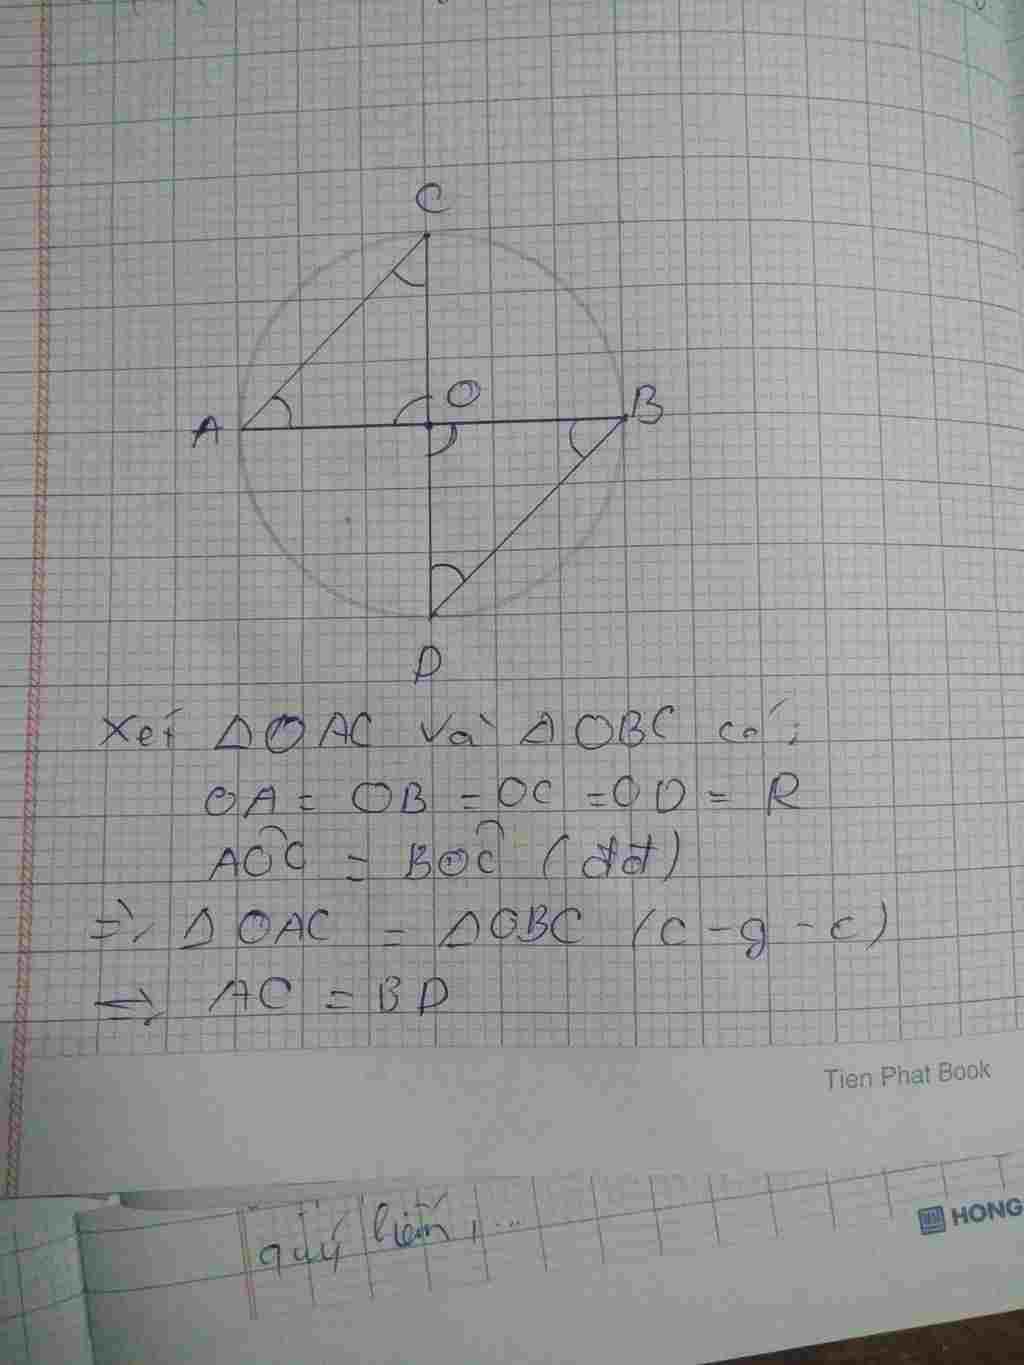 C
O
A
B
D
Xét ΔOAC và ΔOBC có:
OA = OB = OC = OD = R
AOC = BOC (đđ)
=> ΔOAC = ΔOBC (c-g-c)
=> AC = BD
Tien Phat Book
quý hiếm, ...
HONG